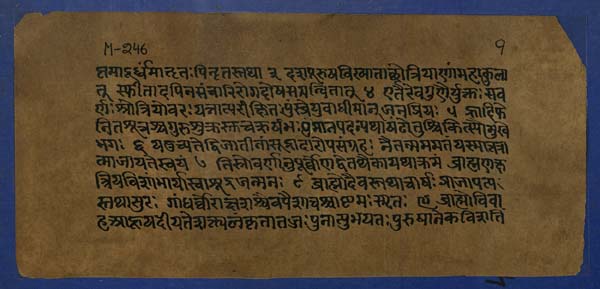 M-246
९
प्तमादूर्ध्वंमातृतः पितृतस्तथा ३ दशपुरुषविख्याताच्छ्रोत्रियाणांमहाकुला
त् स्फीतादपिनसंचारिरोगदोषसमन्वितात् ४ एतैरेवगुणैर्युक्तः सव
र्णः श्रोत्रियोवरः यत्नात्परीक्षितःपुंस्त्वेयुवाधीमान्जनप्रियः ५
यदुच्यतेद्विजातीनांशूद्राद्दारोपसंग्रहः नैतन्मममतंयस्मात्तत्रा
जायतेस्वयं ७ तिस्रोवर्णानुपूर्व्येणद्वेतथैकायथाक्रमं ब्राह्मणक्ष
त्रियविशांभार्यास्वाशूद्रजन्मनः ८ ब्राह्मोदैवस्तथाचार्षः प्राजापत्य
स्तथासुरः गांधर्वोराक्षसश्चैवपैशाचश्चाष्टमः स्मृतः ९ ब्राह्मोविवा
हआहूयदीयतेशक्त्यलंकृतातज्जः पुनात्युभयतः पुरुषानेकविंशतिं